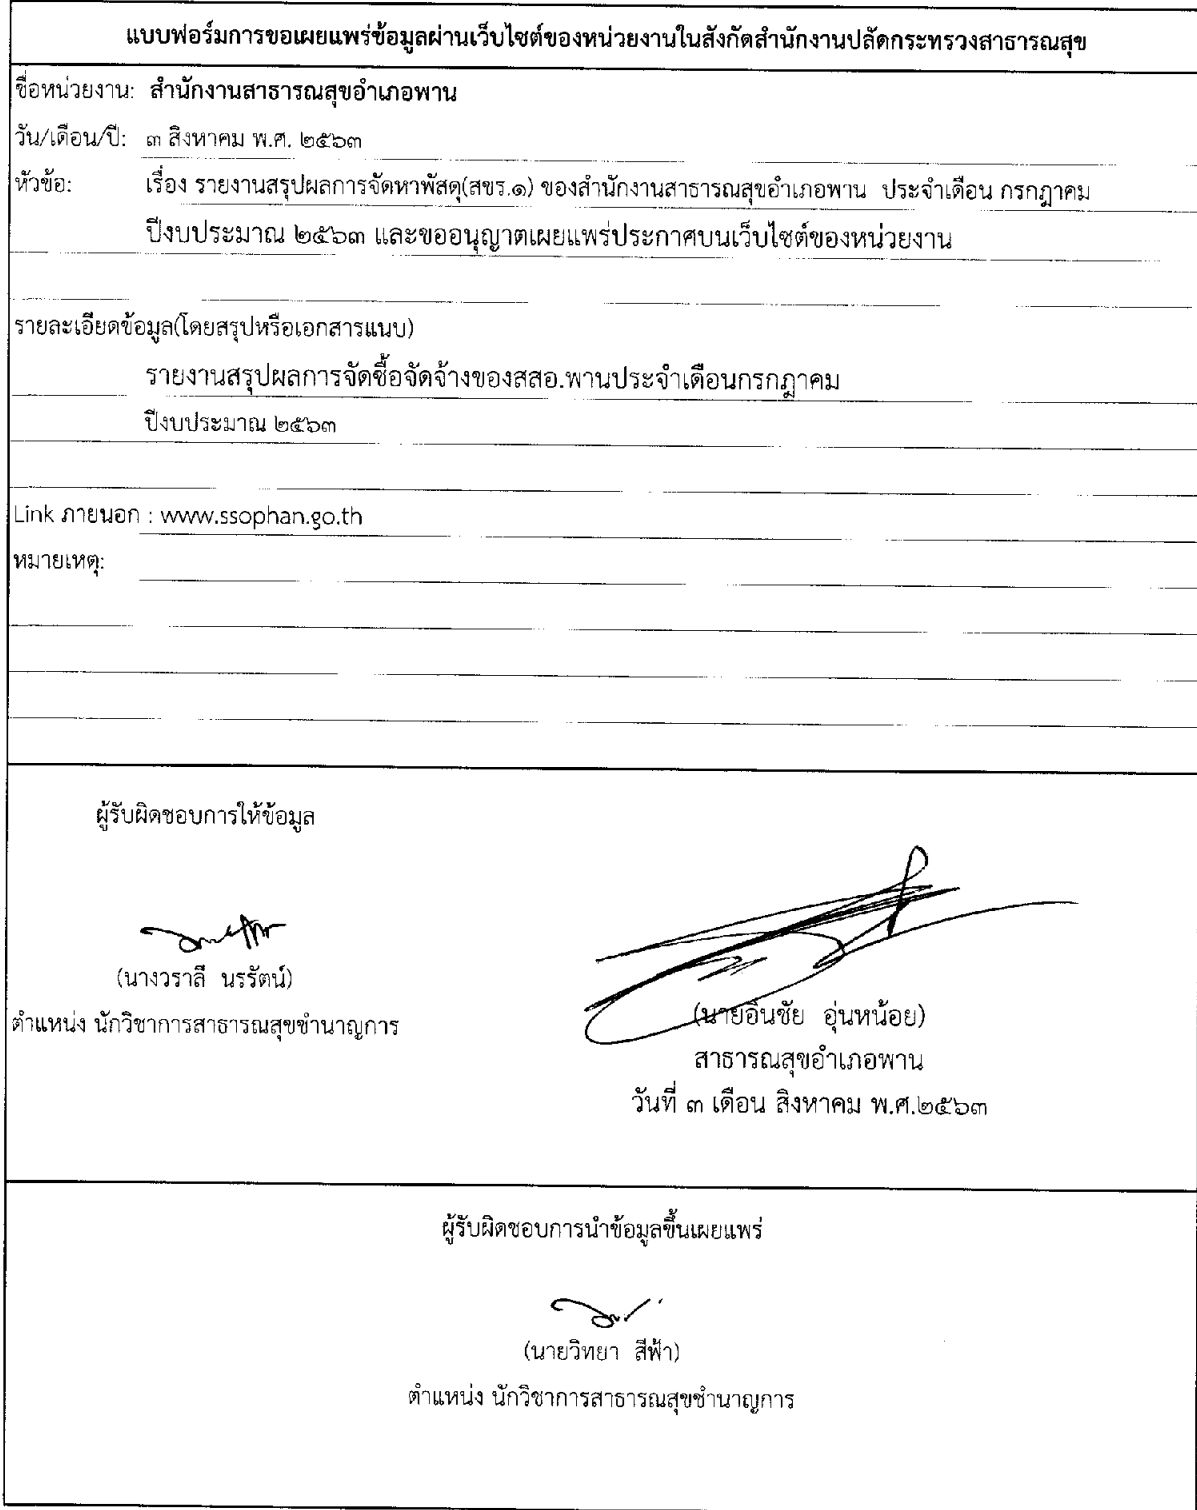 แบบฟอร์มการขอเผยแพร่ข้อมูลผ่านเว็บไซต์ของหน่วยงานในสังกัดสำนักงานปลัดกระทรวงสาธารณสุข
ชื่อหน่วยงาน: สำนักงานสาธารณสุขอำเภอพาน
วัน/เดือน/ปี: ๓ สิงหาคม พ.ศ. ๒๕๖๓
หัวข้อ: เรื่อง รายงานสรุปผลการจัดหาพัสดุ(สขร.๑) ของสำนักงานสาธารณสุขอำเภอพาน ประจำเดือน กรกฎาคม
ปีงบประมาณ ๒๕๖๓ และขออนุญาตเผยแพร่ประกาศบนเว็บไซต์ของหน่วยงาน
รายละเอียดข้อมูล(โดยสรุปหรือเอกสารแนบ)
รายงานสรุปผลการจัดซื้อจัดจ้างของสสอ.พานประจำเดือนกรกฎาคม
ปีงบประมาณ ๒๕๖๓
Link ภายนอก : www.ssophan.go.th
หมายเหตุ:
ผู้รับผิดชอบการให้ข้อมูล
(นางวราลี นรรัตน์)
ตำแหน่ง นักวิชาการสาธารณสุขชำนาญการ
(นายอินชัย อุ่นหน้อย)
สาธารณสุขอำเภอพาน
วันที่ ๓ เดือน สิงหาคม พ.ศ.๒๕๖๓
ผู้รับผิดชอบการนำข้อมูลขึ้นเผยแพร่
(นายวิทยา สีฟ้า)
ตำแหน่ง นักวิชาการสาธารณสุขชำนาญการ